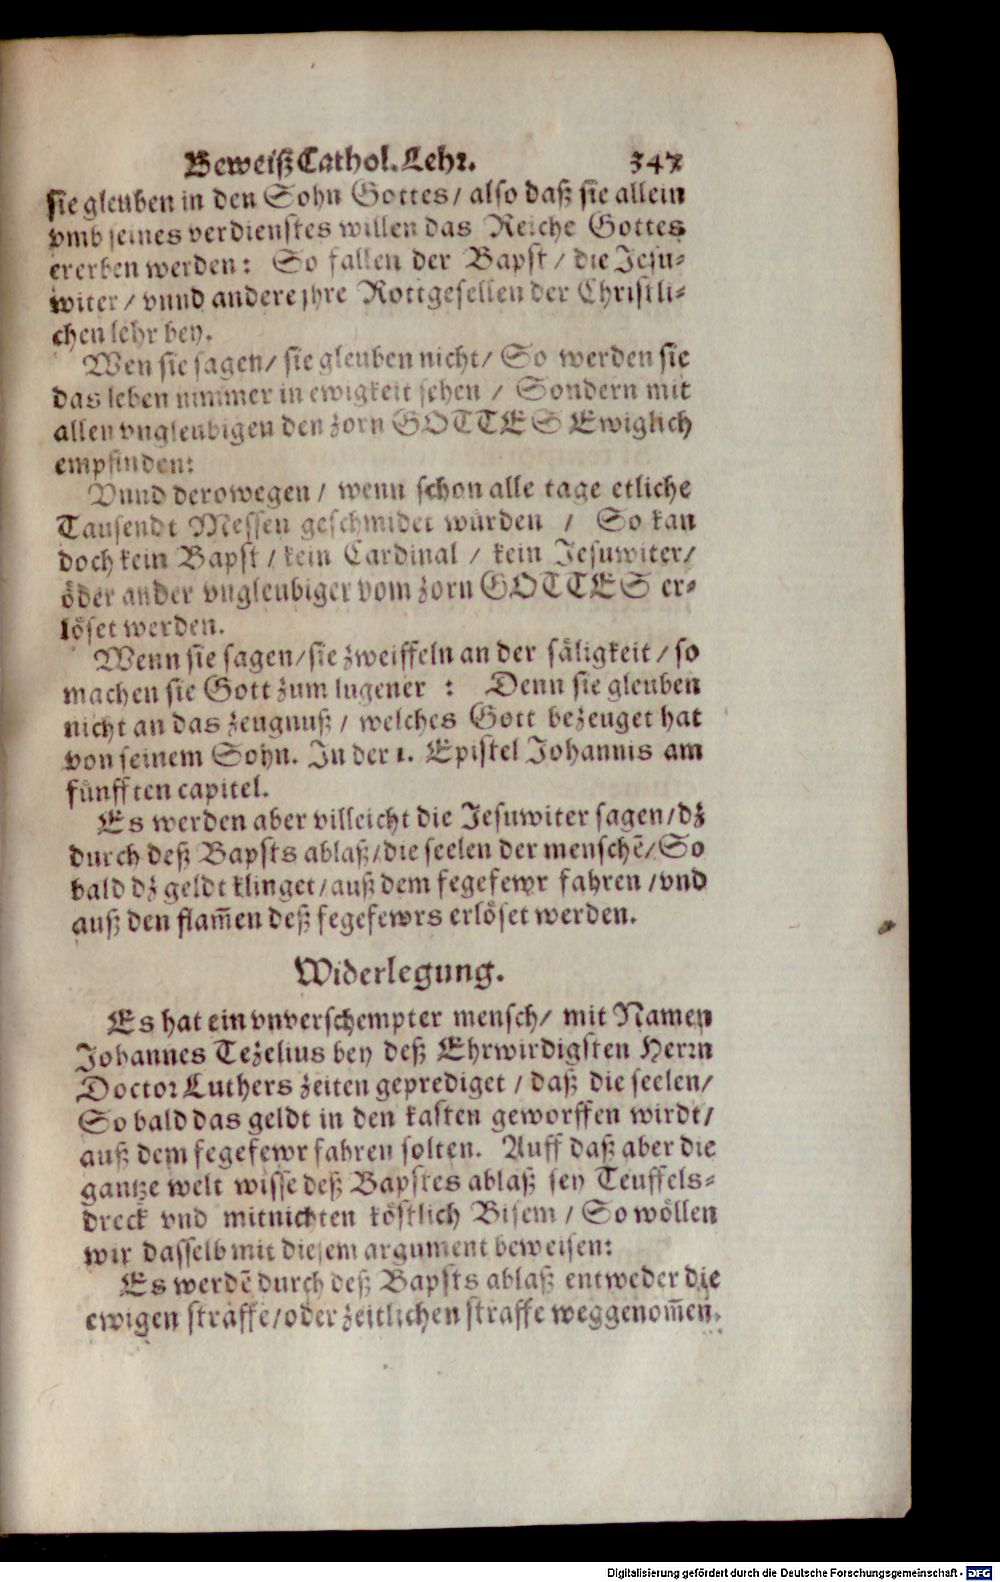 Beweiß Cathol. Lehr. 347
sie gleuben in den Sohn Gottes / also daß sie allein
vmb seines verdienstes willen das Reiche Gottes
ererben werden: So fallen der Bapst / die Jesu-
witer / vnnd andere jhre Rottgesellen der Christli-
chen lehr bey.
Wen sie sagen / sie gleuben nicht / So werden sie
das leben nimmer in ewigkeit sehen / Sondern mit
allen vngleubigen den zorn GOTTES Ewiglich
empfinden:
Vnnd derowegen / wenn schon alle tage etliche
Tausendt Messen geschmidet würden / So kan
doch kein Bapst / kein Cardinal / kein Jesuwiter /
öder ander vngleubiger vom zorn GOTTES er-
löset werden.
Wenn sie sagen / sie zweiffeln an der säligkeit / so
machen sie Gott zum lugener : Denn sie gleuben
nicht an das zeugnuß / welches Gott bezeuget hat
von seinem Sohn. In der 1. Epistel Johannis am
fünfften capitel.
Es werden aber villeicht die Jesuwiter sagen / dz
durch deß Bapsts ablaß / die seelen der menschē / So
bald dz geldt klinget / auß dem fegefewr fahren / vnd
auß den flam̄en deß fegefewrs erlöset werden.
Widerlegung.
Es hat ein vnverschempter mensch / mit Namen
Johannes Tezelius bey deß Ehrwirdigsten Herrn
Doctor Luthers zeiten geprediget / daß die seelen /
So bald das geldt in den kasten geworffen wirdt /
auß dem fegefewr fahren solten. Auff daß aber die
gantze welt wisse deß Bapstes ablaß sey Teuffels-
dreck vnd mitnichten köstlich Bisem / So wöllen
wir dasselb mit diesem argument beweisen:
Es werdē durch deß Bapsts ablaß entweder die
ewigen straffe / oder zeitlichen straffe weggenom̄en.
Digitalisierung gefördert durch die Deutsche Forschungsgemeinschaft - DFG